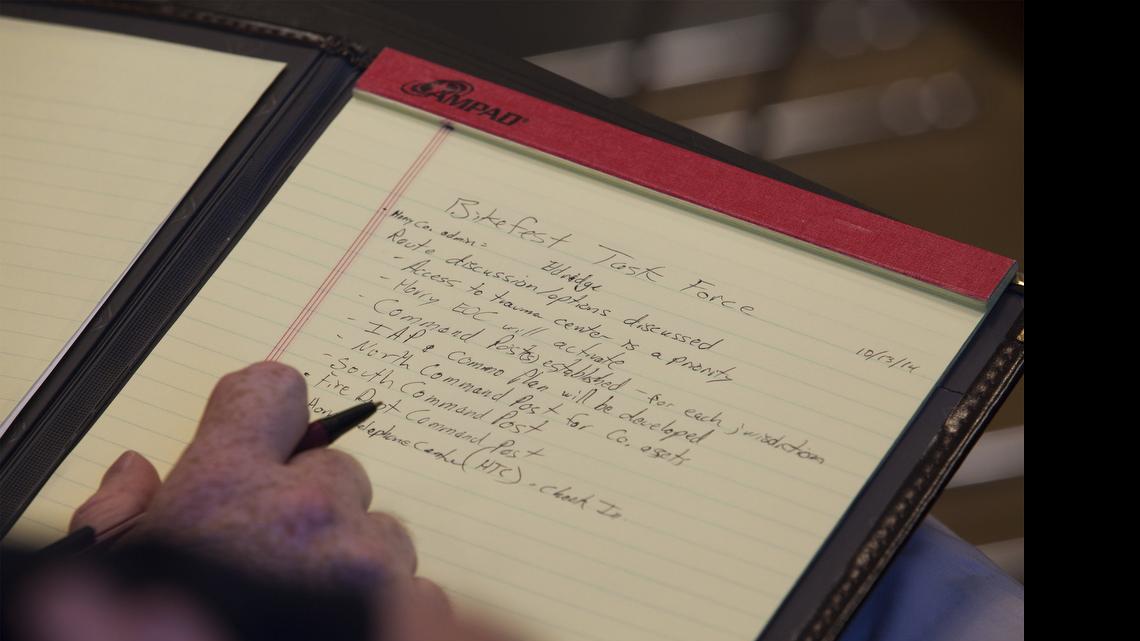 AMPAD
Bikefest Task Force
10/13/14
Horry Co. admin: Eldridge
Route discussion/options discussed
- Access to trauma center is a priority
- Horry EOC will activate
- Command Post(s) established - for each jurisdiction
- IAP & Commo Plan will be developed
- North Command Post for Co. assets
- South Command Post
• Fire Dept Command Post
Telephone Center (HTC) - Check In